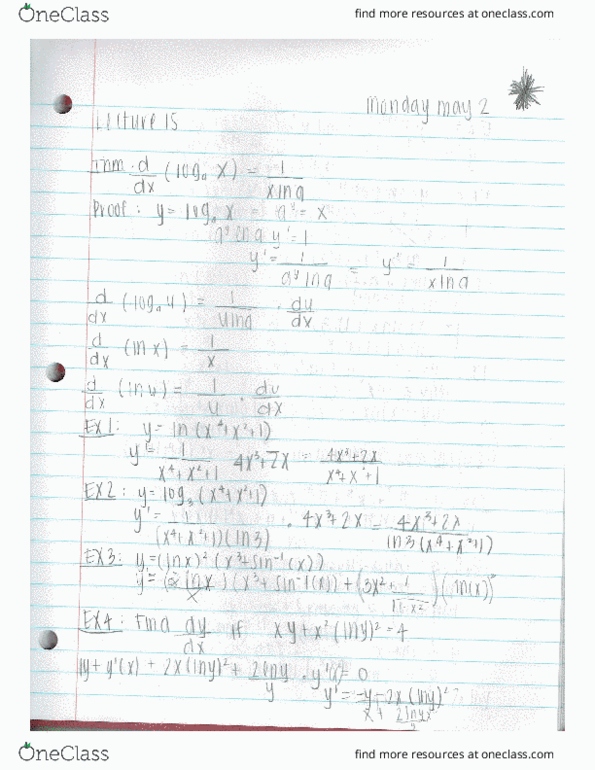 OneClass
find more resources at oneclass.com
monday may 2
Lecture 15
Thm. d/dx (log_a x) = 1/(x ln a)
Proof: y = log_a x = a^y = x
a^y ln a y' = 1
y' = 1/(a^y ln a) = y' = 1/(x ln a)
d/dx (log_a u) = 1/(u ln a) · du/dx
d/dx (ln x) = 1/x
d/dx (ln u) = 1/u · du/dx
EX1: y = ln (x^4+x^2+1)
y' = 1/(x^4+x^2+1) 4x^3+2x = (4x^3+2x)/(x^4+x^2+1)
EX2: y = log_3 (x^4+x^2+1)
y' = 1/((x^4+x^2+1)(ln3)) · 4x^3+2x = (4x^3+2x)/(ln3(x^4+x^2+1))
EX3: y = (ln x)^2 (x^3+sin^-1(x))
y' = (2 ln x/x)(x^3+sin^-1(x)) + (3x^2+ 1/√(1-x^2))(ln(x))^2
EX4: Find dy/dx if xy+x^2(lny)^2=4
1y+y'(x) + 2x(lny)^2 + 2lny/y · y'
= 0
y' = 
OneClass
find more resources at oneclass.com